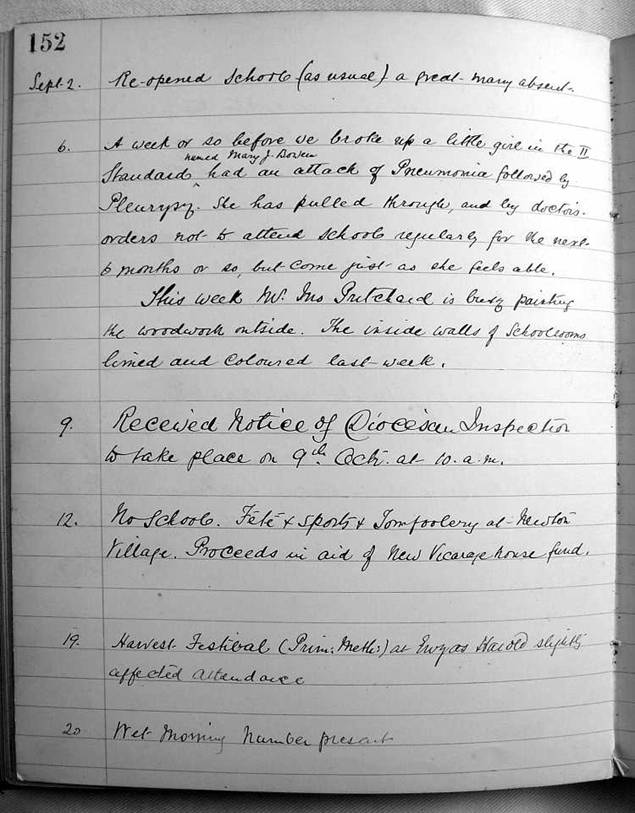 152
Sept. 2. Re-opened School (as usual) a great many absent.
6. A week or so before we broke up a little girl in the II
named Mary J. Bowen
Standard ^ had an attack of Pneumonia followed by
Pleurysy. She has pulled through, and by doctors.
orders not to attend School regularly for the next
6 months or so, but come just as she feels able.
This week Mr. Jno Pritchard is busy painting
the woodwork outside. The inside walls of Schoolrooms
limed and coloured last week.
9. Received Notice of Diocesan Inspection
to take place on 9th Oct. at 10. a.m.
12. No School. Fete & Sports & Tomfoolery at Newton
Village. Proceeds in aid of New Vicarage house fund.
19. Harvest Festival (Prim: Meths) at Ewyas Harold slightly
affected attendance
20 Wet Morning Number present